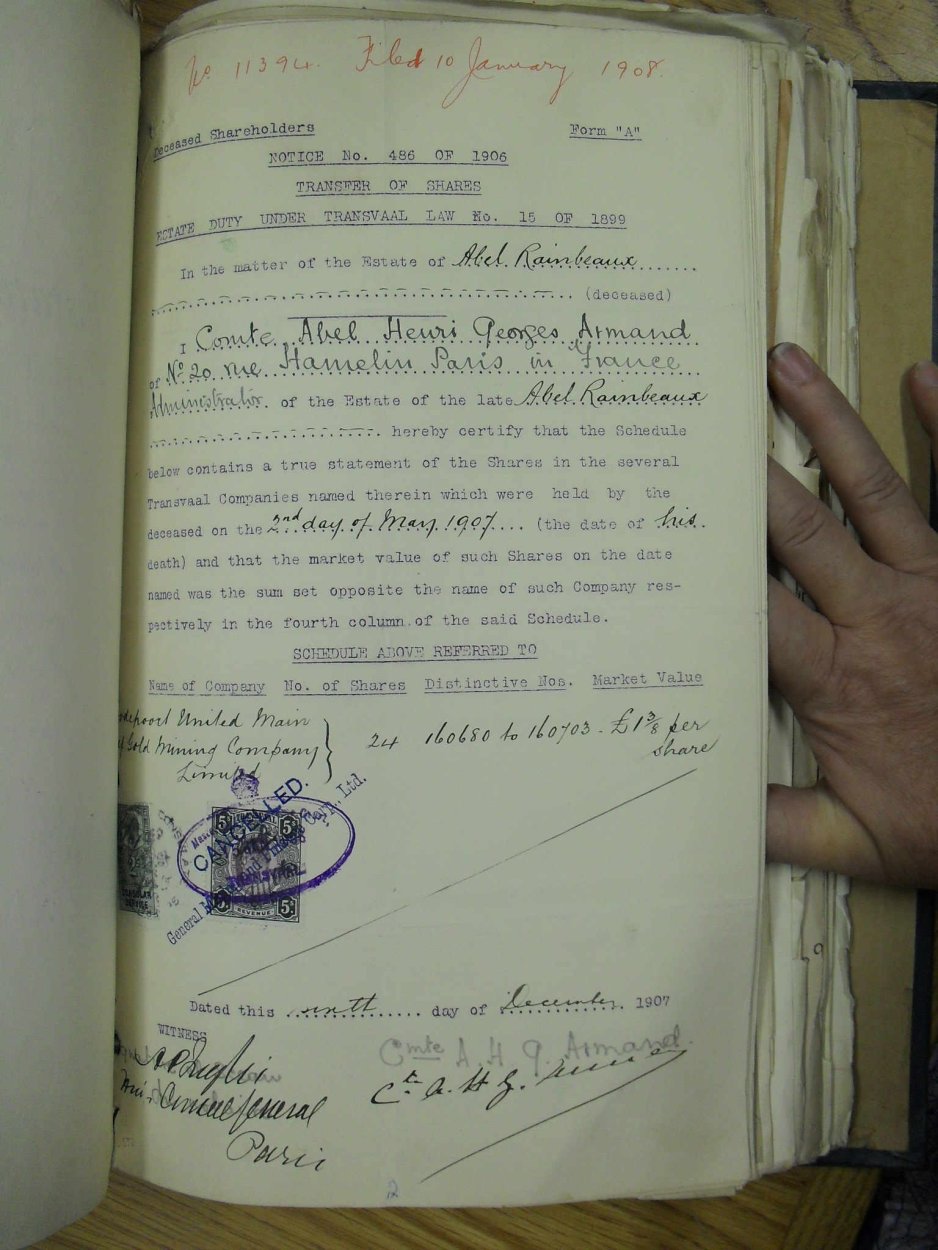 No 11394. Filed 10 January 1908.
Deceased Shareholders Form "A"
NOTICE No. 486 OF 1906
TRANSFER OF SHARES
ESTATE DUTY UNDER TRANSVAAL LAW No. 15 OF 1899
In the matter of the Estate of Abel Rainbeaux
(deceased)
I Comte Abel Henri Georges Armand
of No 20 rue Hamelin Paris in France
Administrator of the Estate of the late Abel Rainbeaux
hereby certify that the Schedule
below contains a true statement of the Shares in the several
Transvaal Companies named therein which were held by the
deceased on the 2nd day of May 1907 (the date of his
death) and that the market value of such Shares on the date
named was the sum set opposite the name of such Company res-
pectively in the fourth column of the said Schedule.
SCHEDULE ABOVE REFERRED TO
Name of Company No. of Shares Distinctive Nos. Market Value
odepoort United Main
f Gold Mining Company } 24 160680 to 160703 - £1 3/8 per
Limited share
CANCELLED.
General and Finance Corp., Ltd.
5s 5s
REVENUE
Dated this day of December 1907
WITNESS
Cmte A. H. G. Armand.
Cte A. H. G.
Consul General
Paris
2